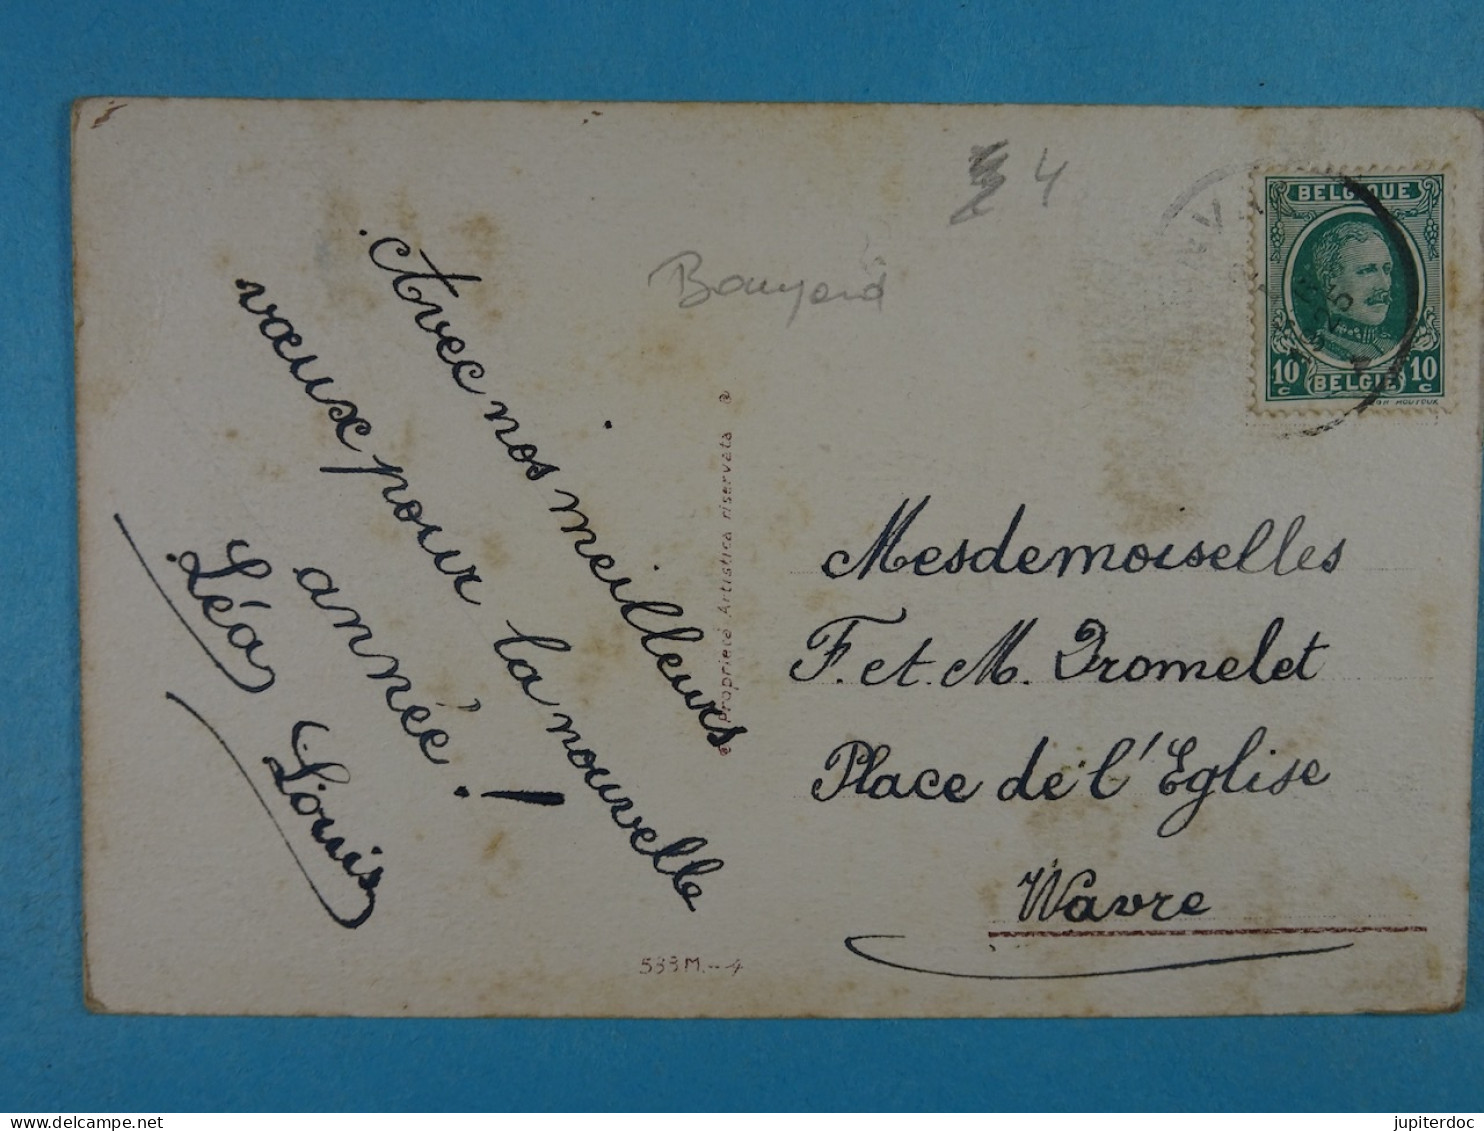 Avec nos meilleurs
vœux pour la nouvelle
année !
Léa Louis
4
BELGIQUE
10 c BELGIE 10 c
Proprietà Artistica riservata
533M.-4
Mesdemoiselles
F. et M. Dromelet
Place de l'Eglise
Wavre
delcampe.net
jupiterdoc